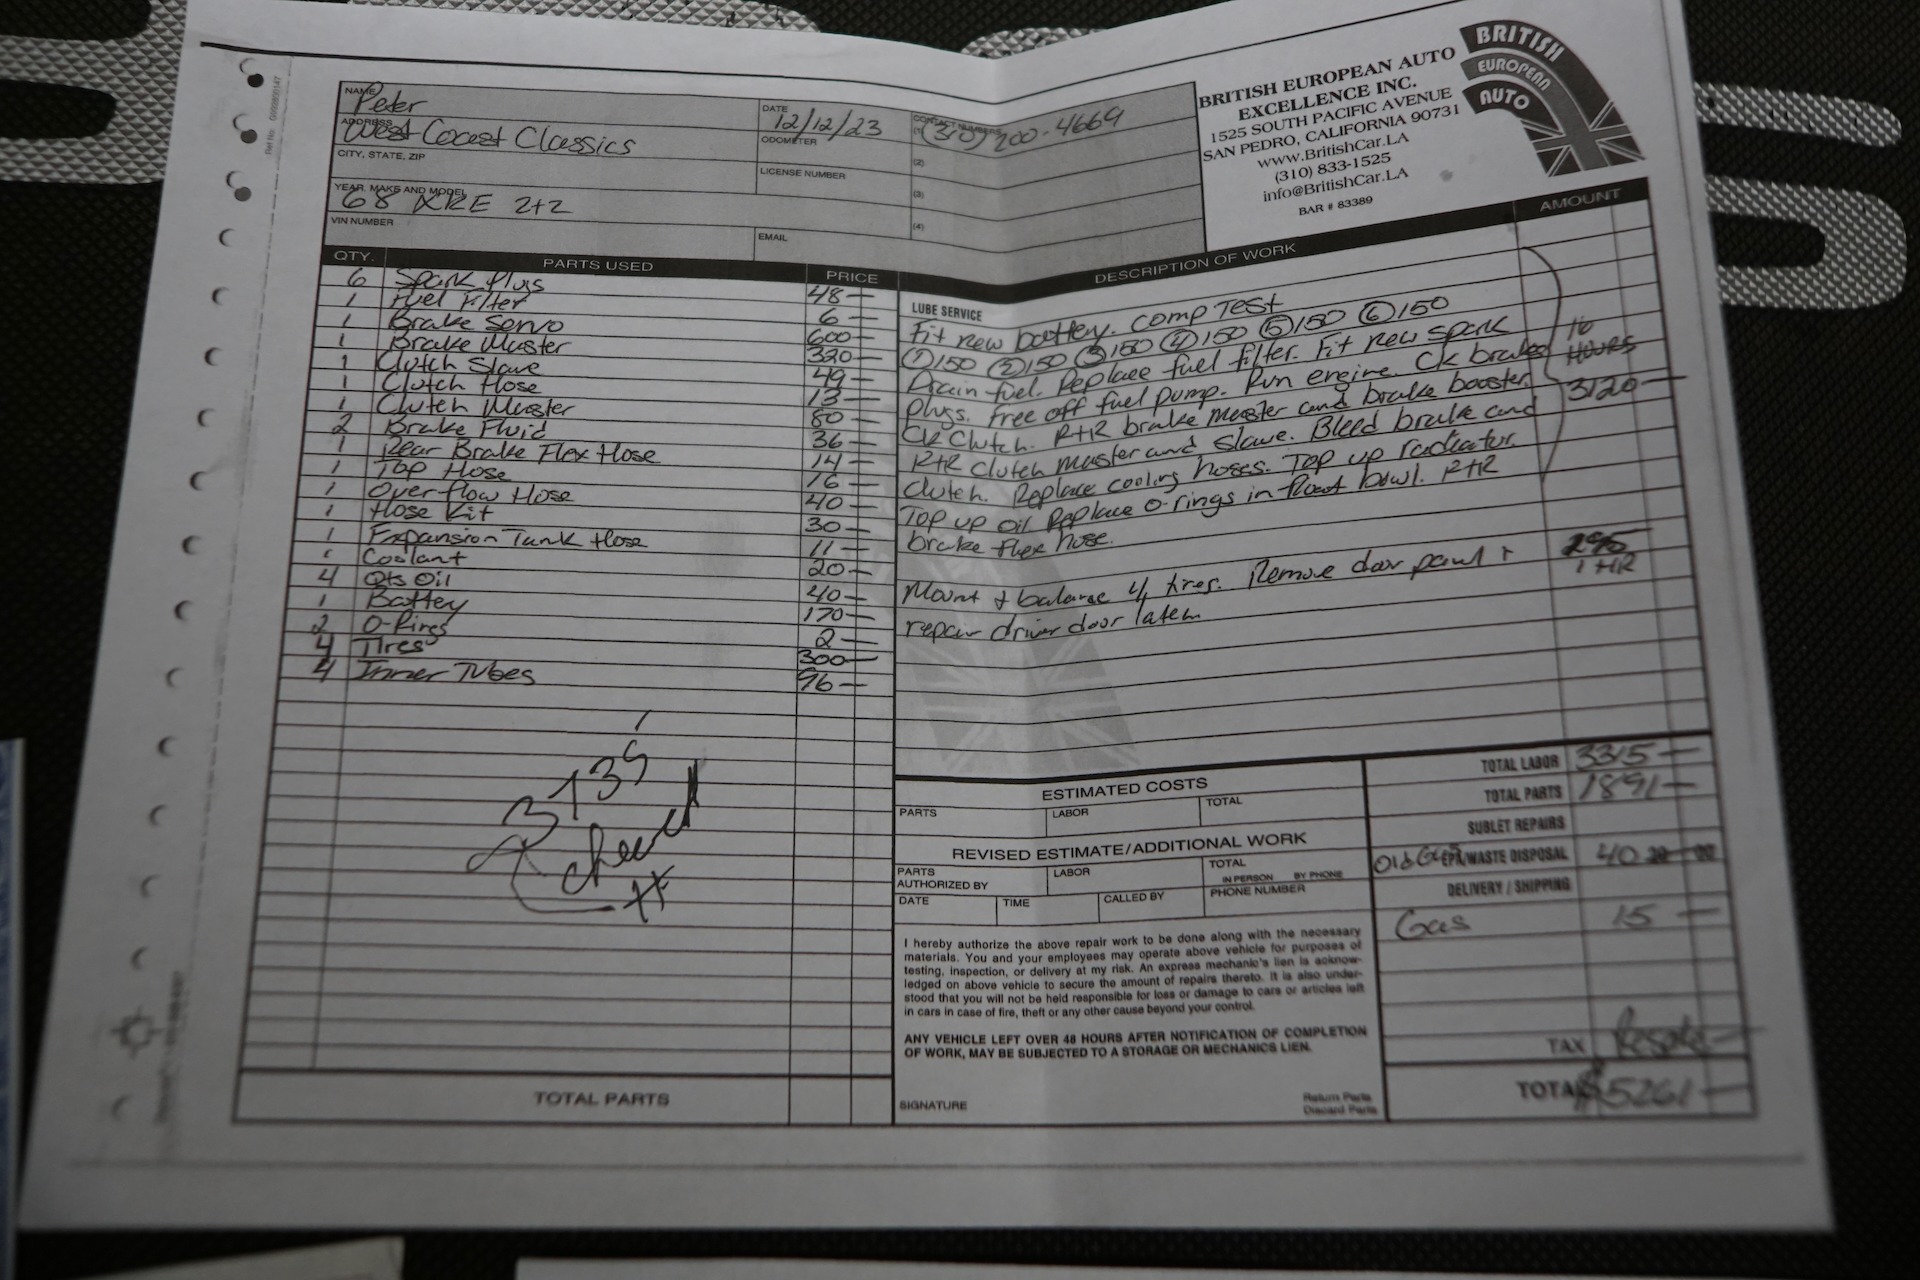 BRITISH
EUROPEAN
AUTO
BRITISH EUROPEAN AUTO
EXCELLENCE INC.
1525 SOUTH PACIFIC AVENUE
SAN PEDRO, CALIFORNIA 90731
www.BritishCar.LA
(310) 833-1525
info@BritishCar.LA
BAR # 83389
NAME Peter
ADDRESS West Coast Classics
CITY, STATE, ZIP
YEAR, MAKE AND MODEL
68 XKE 2+2
VIN NUMBER
DATE
12/12/23
ODOMETER
LICENSE NUMBER
EMAIL
CONTACT NUMBERS
(1) 200-4669
(2)
(3)
(4)
QTY. PARTS USED PRICE
6 Spark Plugs 48—
1 Fuel Filter 6—
1 Brake Servo 600—
1 Brake Master 320—
1 Clutch Slave 49—
1 Clutch Hose 13—
1 Clutch Master 80—
2 Brake Fluid 36—
1 Rear Brake Flex Hose 14—
1 Top Hose 16—
1 Over flow Hose 40—
1 Hose Kit 30—
1 Expansion Tank Hose 11—
1 Coolant 20—
4 Qts Oil 40—
1 Battery 170—
2 O-Rings 2—
4 Tires 300—
4 Inner Tubes 96—
TOTAL PARTS
DESCRIPTION OF WORK AMOUNT
LUBE SERVICE
Fit new battery. Comp Test
①150 ②150 ③150 ④150 ⑤150 ⑥150
Drain fuel. Replace fuel filter. Fit new spark
plugs. Free off fuel pump. Run engine. CK brakes
CK Clutch. R+R brake master and brake booster.
R+R clutch master and slave. Bleed brake and
clutch. Replace cooling hoses. Top up radiator.
Top up oil Replace O-rings in float bowl. R+R
brake flex hose.
16
HOURS
3120—
Mount + balance 4 tires. Remove door panel +
repair driver door latch
195
1 HR
ESTIMATED COSTS
PARTS LABOR TOTAL
REVISED ESTIMATE/ADDITIONAL WORK
PARTS LABOR TOTAL
AUTHORIZED BY IN PERSON BY PHONE
DATE TIME CALLED BY PHONE NUMBER
I hereby authorize the above repair work to be done along with the necessary
materials. You and your employees may operate above vehicle for purposes of
testing, inspection, or delivery at my risk. An express mechanic's lien is acknow-
ledged on above vehicle to secure the amount of repairs thereto. It is also under-
stood that you will not be held responsible for loss or damage to cars or articles left
in cars in case of fire, theft or any other cause beyond your control.
ANY VEHICLE LEFT OVER 48 HOURS AFTER NOTIFICATION OF COMPLETION
OF WORK, MAY BE SUBJECTED TO A STORAGE OR MECHANICS LIEN.
SIGNATURE
Return Parts
Discard Parts
TOTAL LABOR 3315—
TOTAL PARTS 1891—
SUBLET REPAIRS
Old Gas EPA/WASTE DISPOSAL 40
DELIVERY / SHIPPING
Gas 15—
TAX Resale—
TOTAL $5261—